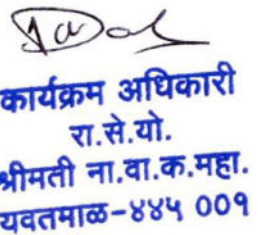 कार्यक्रम अधिकारी
रा.से.यो.
श्रीमती ना.वा.क.महा.
यवतमाळ-४४५ 00१